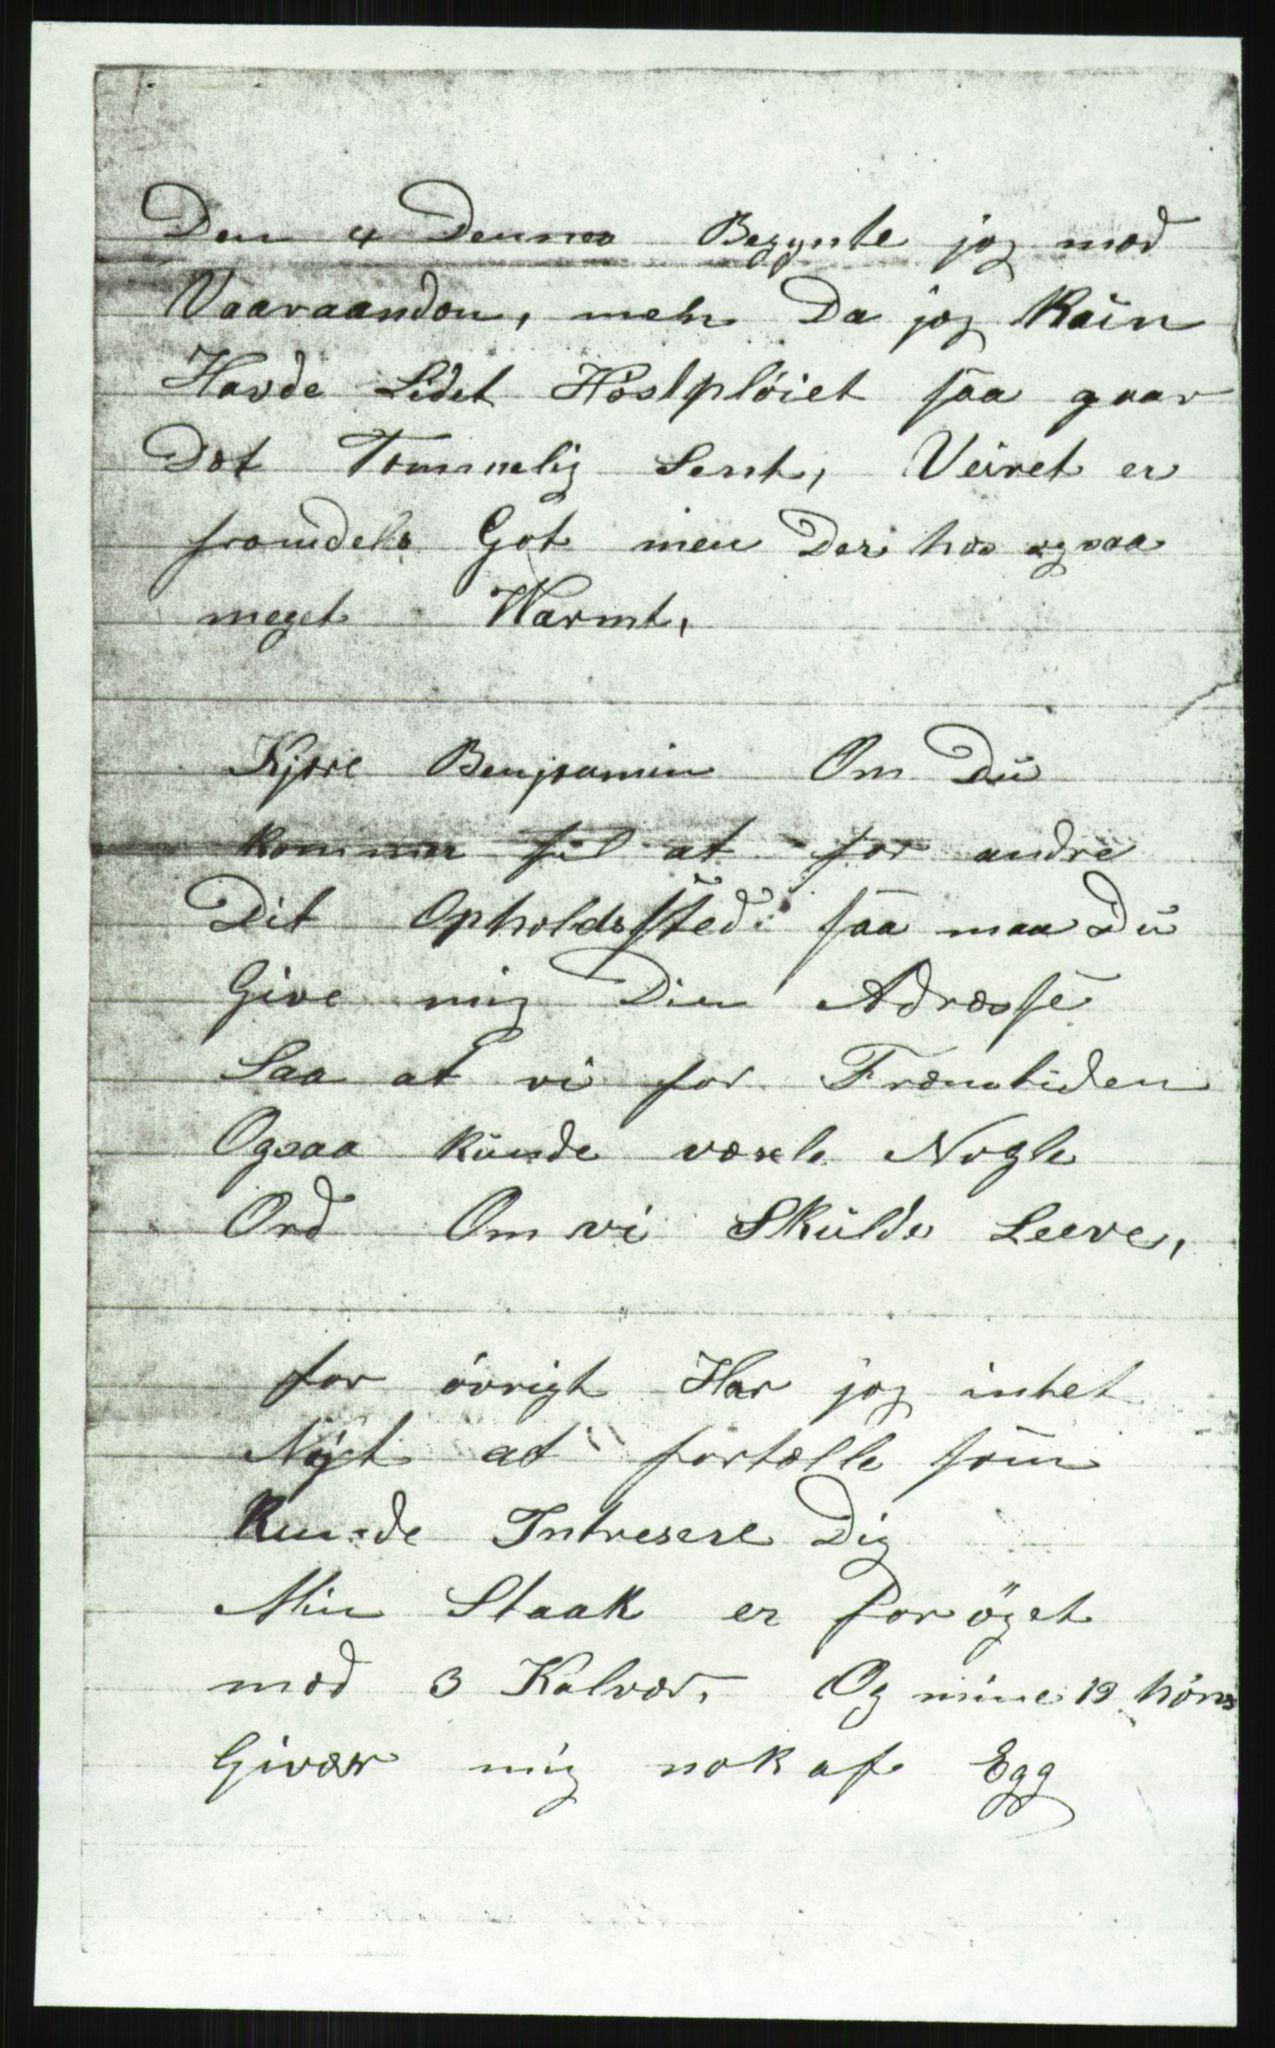 Den 4 Dennes Begynte jeg med
Vaaraanden, men Da jeg Kuin
Havde Lidet Höstplöiet saa gaar
Det Temmelig Sent, Veiret er
fremdeles Got men Der hos ogsaa
meget Warmt,
Kjære Benjamin Om Dü
kommer til at for andre
Dit Opholdssted saa maa Dü
Give mig Din Adresse
Saa at vi for Fremtiden
Ogsaa künde væxle Nogle
Ord Om vi Skülde Leeve,
for övrigt Har jeg intet
Nyt at fortælle som
Kunde Intresere Dig
Min Staak er foröget
med 3 Kalver. Og mine 19 höns
Giver mig nok af Egg